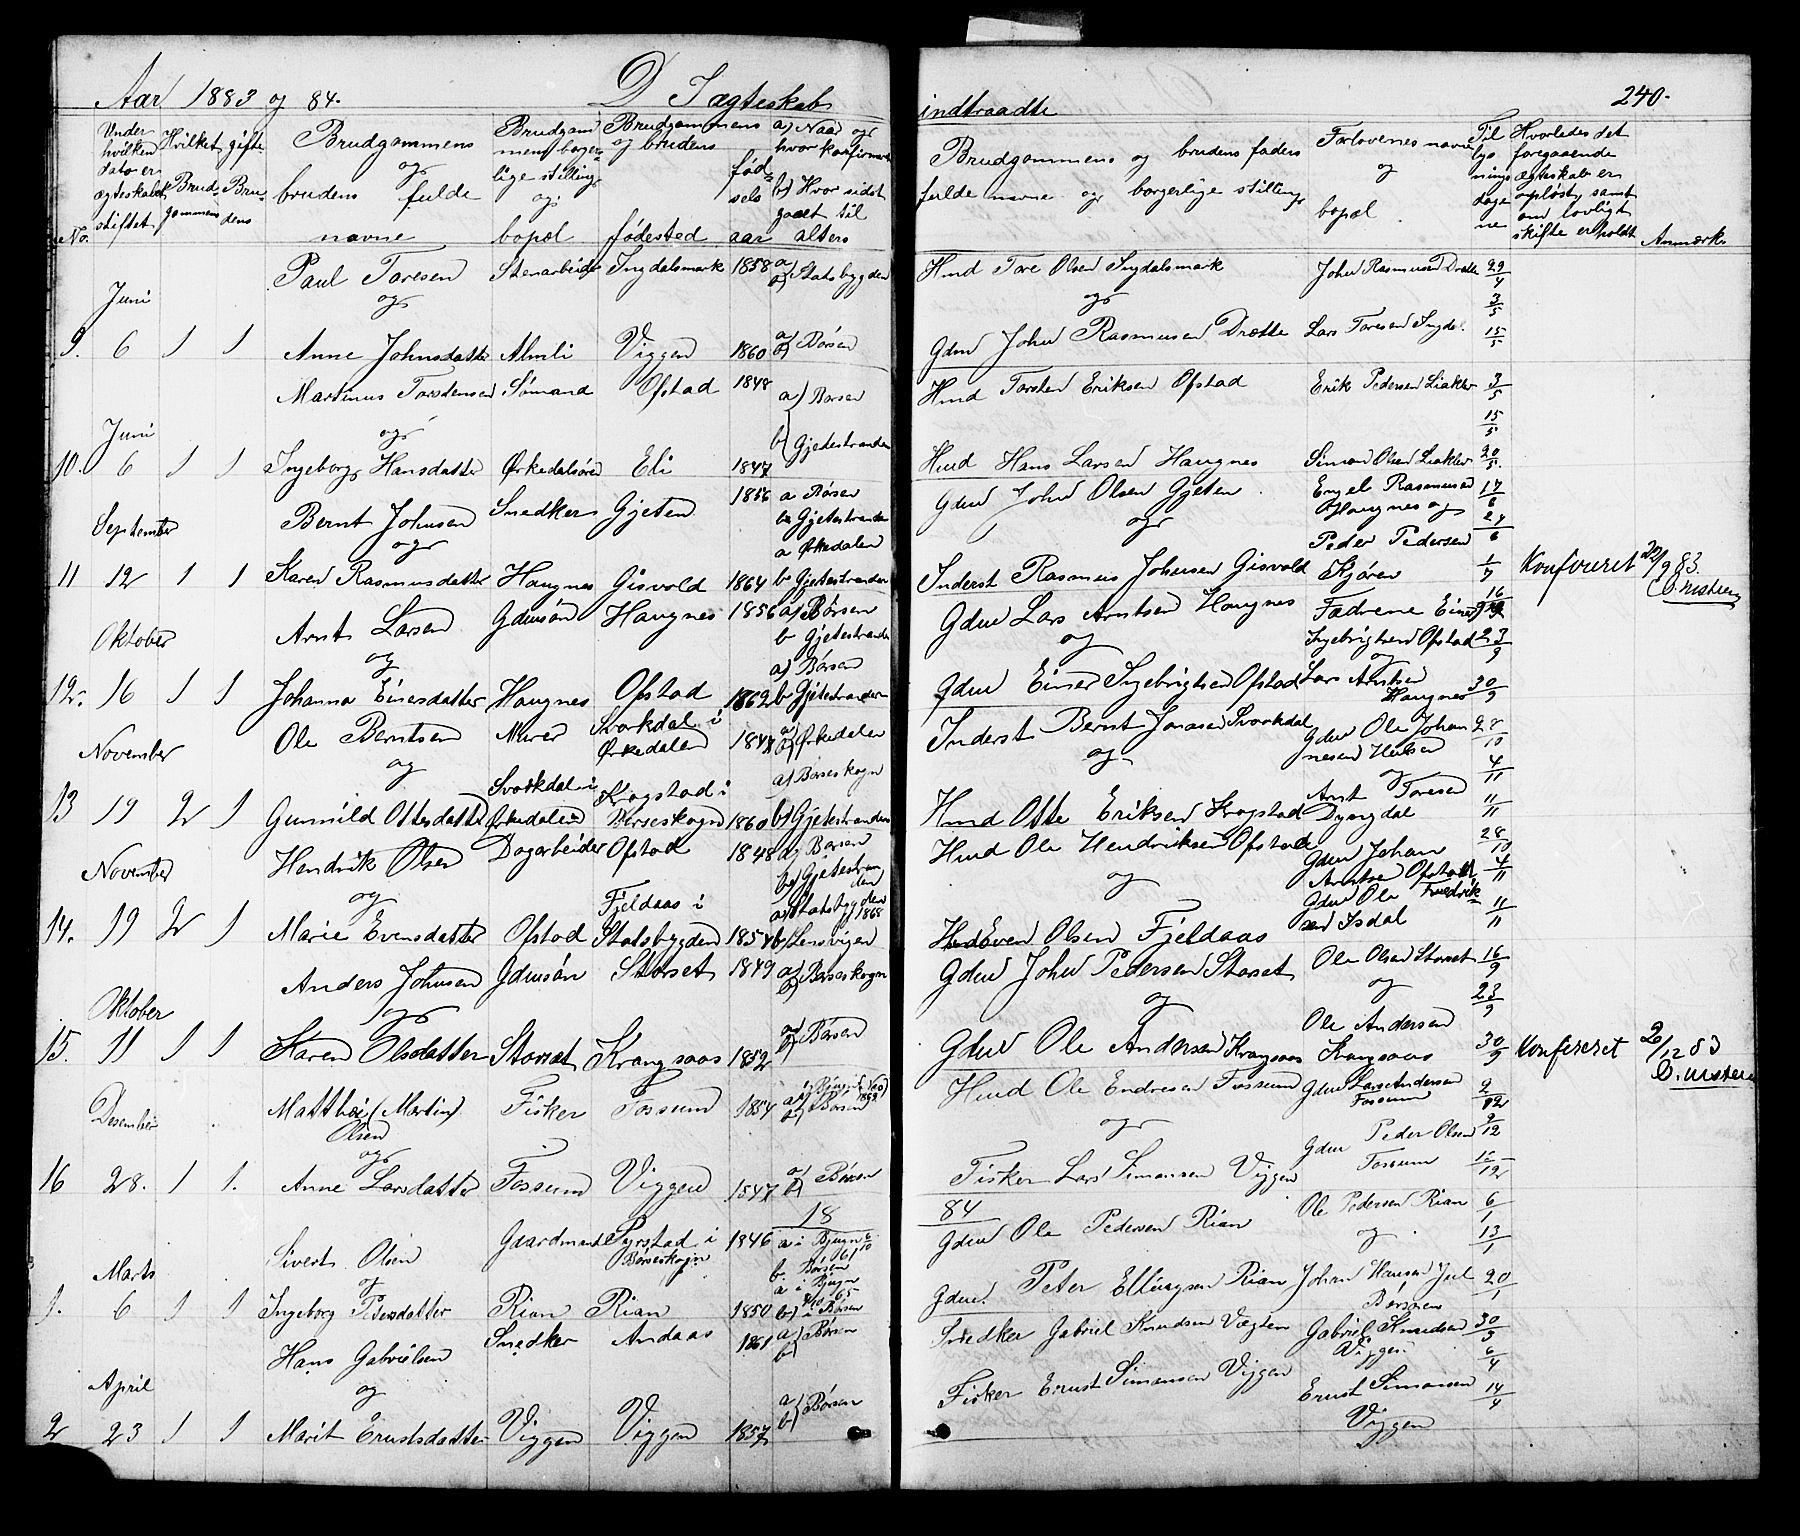 Aar 1883 og 84.
D Iægteskab
indtraadte
240.
No.
Under hvilken dato er ægteskabet stiftet
Hvilket gifte
Brudgommens
Brudens
Brudgommens og brudens fulde navne
Brudgommens borgerlige stilling og bopæl
Brudgommens og brudens
fødested
fødselsaar
a) Naar og hvor konfirmeret
b) Hvor sidst gaaet til alters
Brudgommens og brudens faders fulde navne og borgerlige stilling
Forlovernes navne og bopæl
Tillysningsdagene
Hvorledes det foregaaende ægteskab er opløst, samt om lovligt skifte er holdt
Anmærk.
Paul Toresen Stenarbeider Ingdalsmark 1858 a) b) Statsbygden Hmd Tore Olsen Ingdalsmark John Rasmussen Drætte 29/4
Juni
og og 3/5
9. 6 1 1 Anne Johnsdatter Almli Viggen 1860 a) b) Børsen Gdm John Rasmussen Drætte Lars Toresen Ingdal 15/5
Martinus Torstensen Sømand Ofstad 1848 a) Børsen Hmd Torsten Eriksen Ofstad Erik Pedersen Liaklev 3/5
15/5
Juni og b) Gjetestranden
10. 6 1 1 Ingeborg Hansdatter Ørkedalsøren Eli 1847 Hmd Hans Larsen Haugnes Simon Olsen Liaklev 20/5
September Bernt Johnsen Snedker Gjeten 1856 a Børsen b Gjetestranden Gdm John Olsen Gjeten Engel Rasmussen Haugnes og 17/6
og a Ørkedalen og Peder Pedersen 24/6
11 12 1 1 Karen Rasmusdatter Haugnes Gisvold 1864 b Gjetestranden Inderst Rasmus Johnsen Gisvold Skjøren 1/7 Konfereret 22/9 83.
Arnt Larsen Gdmsøn Haugnes 1856 a) Børsen Gdm Lars Arntsen Haugnes Fædrene Einer 16/9
Oktober og b Gjetestranden og Ingebrigtsen Ofstad 23/9
a) Børsen og
12. 16 1 1 Johanna Einersdatter Haugnes Ofstad 1862 b Gjetestranden Gdm Einer Ingebrigtsen Ofstad Lars Arntsen Haugnes 30/9
November Ole Berntsen Murer Svorkdal i Ørkedalen a) b) Ørkedalen Inderst Bernt Jonasen Svorkdal Gdm Ole Johannesen 28/10
og a) Børseskogn og og 4/11
13 19 2 1 Gunnild Ottesdatter Svorkdal i Ørkedalen Krogstad i Børseskogn 1860 b) Gjetestranden Hmd Otte Eriksen Krogstad Arnt Toresen Dyngdal 11/11
November Hendrik Olsen Dagarbeider Ofstad 1848 a) Børsen b) Gjetestranden Hmd Ole Hendriksen Ofstad Gdm Johan Arntsen Ofstad 28/10 4/11
og og
14. 19 2 1 Marie Evensdatter Ofstad Fjeldaas i Statsbygden a) Statsbygden 1868 b) Lensvigen Even Olsen Fjeldaas Gdm Ole Fredriksen Isdal 11/11
Anders Johnsen Gdmsøn Storset 1849 a) b) Børseskogn Gdm John Pedersen Storset Ole Olsen Storset 16/9
Oktober og og og 23/9
15. 11 1 1 Karen Olsdatter Storset Krangsaas 1852 a) b) Børsen Gdm Ole Andersen Krangsaas Ole Andersen Krangsaas 30/9 Konfereret 2/12 83
Desember Matthis (Martin) Olsen Fisker Fossum 1854 a) b) Børsen Hmd Ole Endresen Fossum Gdm Lars Andersen Fossum 2/12
og og Gdm Peder Olsen Fossum 9/12
16 28. 1 1. Anne Larsdatter Fossum Viggen 1847 a) b) Børsen Fisker Lars Simonsen Viggen 16/12
18 84
Sivert Olsen Gaardmand Pyrstad i Børseskogn 1846 a i Bjugn 6/10 61 b. Børsen Gdm Ole Pedersen Rian Ole Pedersen Rian 6/1
Marts og og 13/1
1. 6 1 1 Ingeborg Petersdatter Rian Rian 1850 a i Bjugn 65 b) i Børsen Gdm. Peter Ellingsen Rian Johan Hansen Jul Børsøren 20/1
Hans Gabrielsen Snedker Andaas 1861 a) b) Børsen Snedker Gabriel Knudsen Vægten Gabriel Knudsen Viggen 30/3
April og 6/4
2 23 1 1 Marit Ernstsdatter Viggen Viggen 1857 a) b) Børsen Fisker Ernst Simonsen Viggen Ernst Simonsen Viggen 14/4